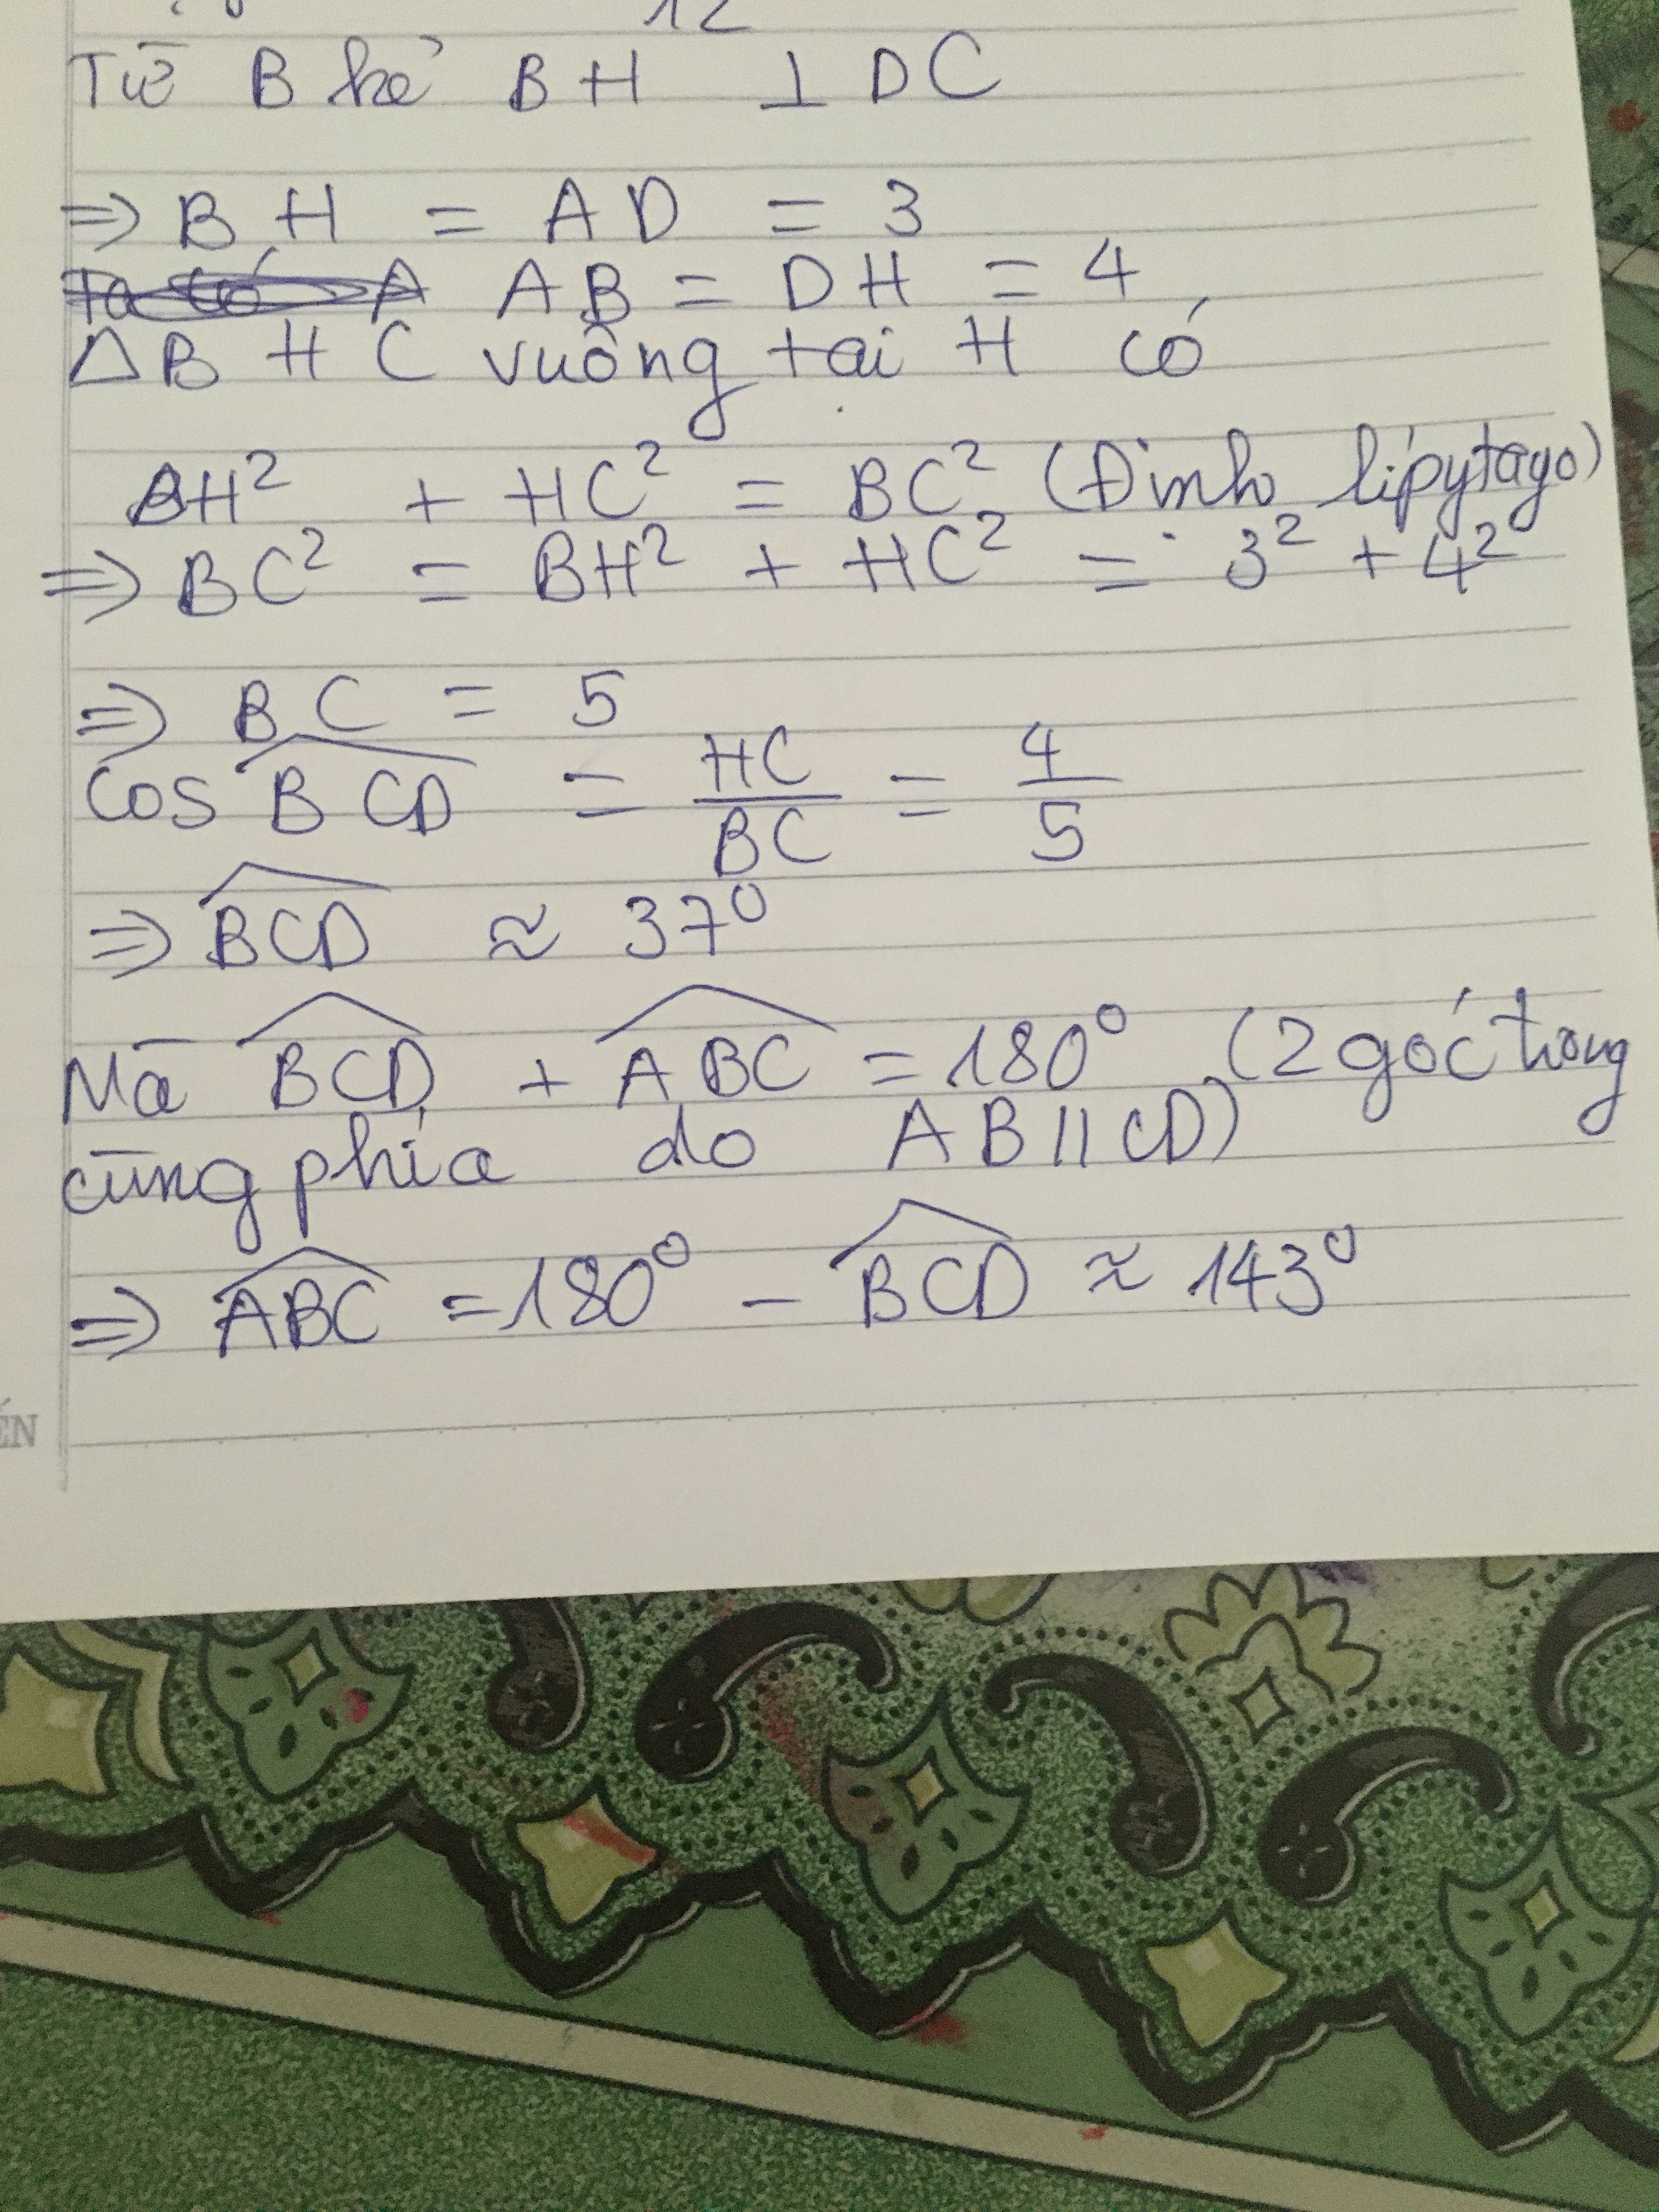 12
Từ B kẻ BH ⊥ DC
=> BH = AD = 3
Ta có A AB = DH = 4
ΔBHC vuông tại H có
BH² + HC² = BC² (Định lí pytago)
=> BC² = BH² + HC² = 3² + 4²
=> BC = 5
cos BCD = HC/BC = 4/5
=> BCD ≈ 37°
Mà BCD + ABC = 180° (2 góc trong
cùng phía do AB//CD)
=> ABC = 180° - BCD ≈ 143°
ẾN